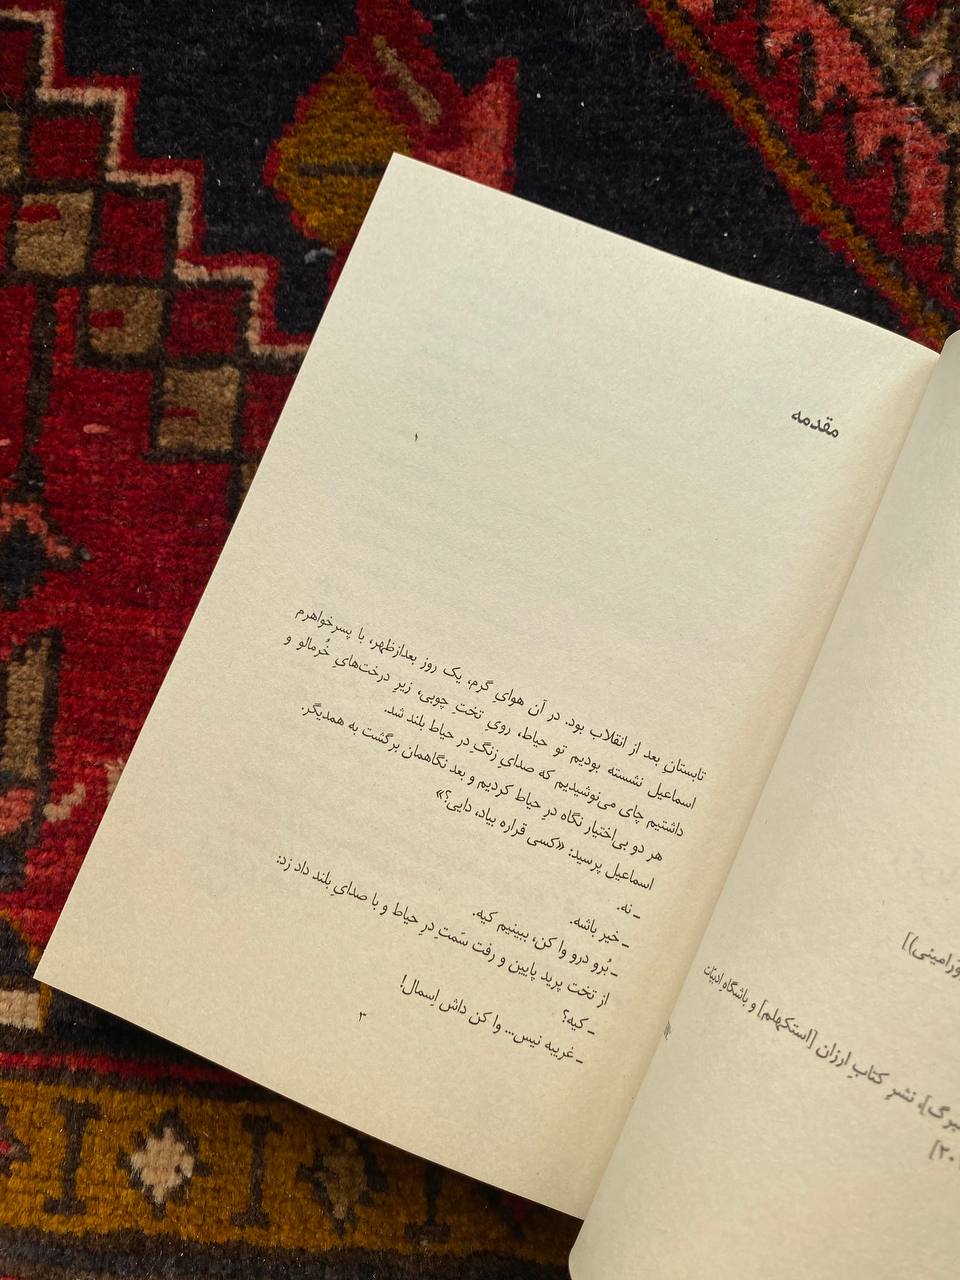 مقدمه
۱
تابستانِ بعد از انقلاب بود. در آن هوایِ گرم، یک روز بعدازظهر، با پسرخواهرم
اسماعیل نشسته بودیم تو حیاط، رویِ تختِ چوبی، زیرِ درخت‌هایِ خُرمالو و
داشتیم چای می‌نوشیدیم که صدایِ زنگِ در حیاط بلند شد.
هر دو بی‌اختیار نگاه درِ حیاط کردیم و بعد نگاهمان برگشت به همدیگر.
اسماعیل پرسید: «کسی قراره بیاد، دایی؟»
ـ نه.
ـ خیر باشه.
ـ بُرو درو وا کن، ببینیم کیه.
از تخت پرید پایین و رفت سَمتِ درِ حیاط و با صدایِ بلند داد زد:
ـ کیه؟
ـ غریبه نیس... وا کن داش اِسمال!
۳
نشرِ کتابِ ارزان [استکهلم] و باشگاه ادبیّات